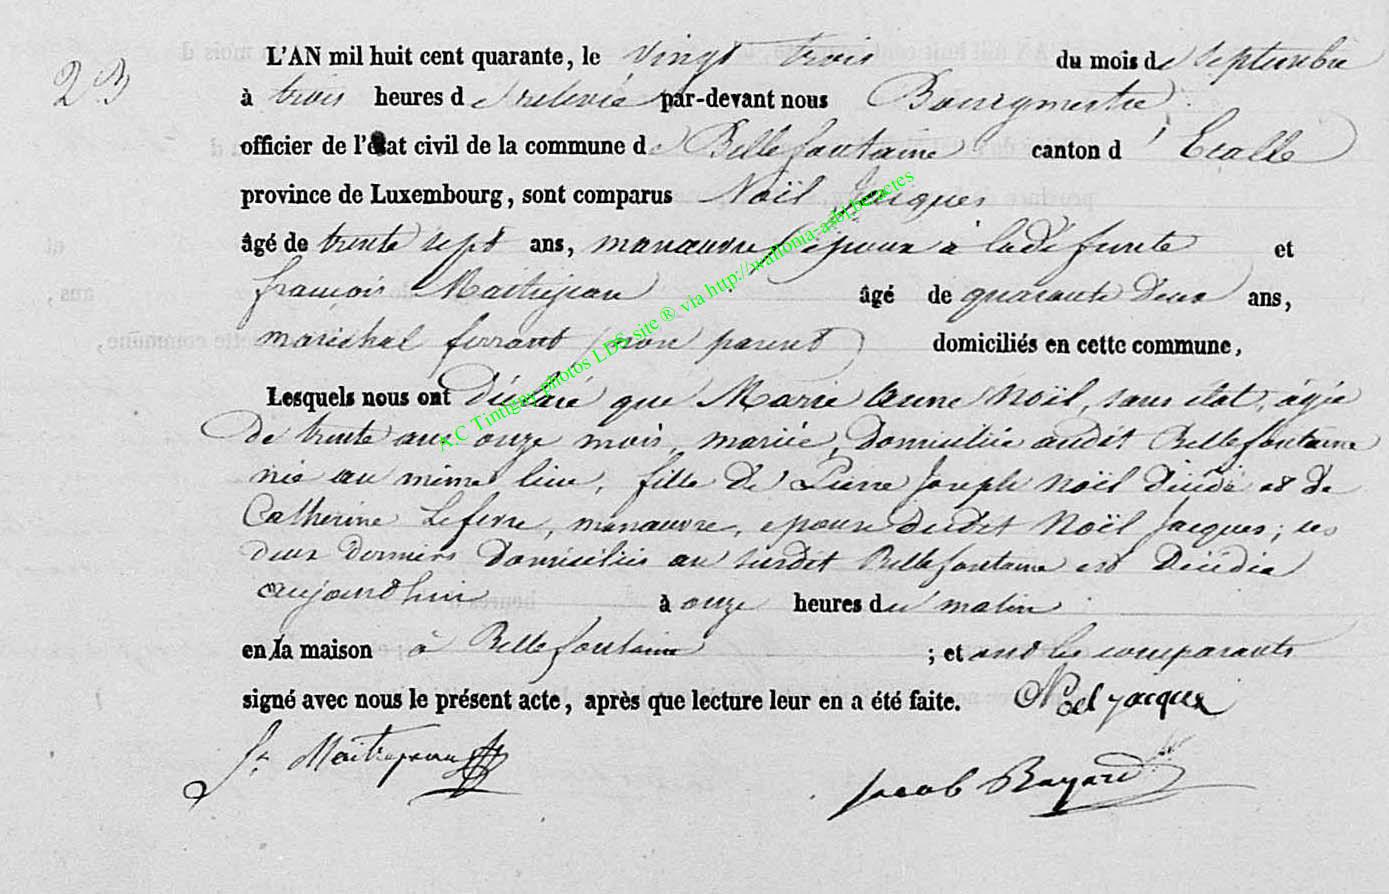 23
L'AN mil huit cent quarante, le vingt trois du mois de septembre
à trois heures de relevée par-devant nous Bourgmestre
officier de l'état civil de la commune de Bellefontaine canton d'Etalle
province de Luxembourg, sont comparus Noël Jacques
âgé de trente sept ans, manœuvre, époux à la défunte et
françois Maitrejean âgé de quarante deux ans,
maréchal ferrant (non parent) domiciliés en cette commune,
Lesquels nous ont déclaré que Marie Anne Noël, sans état, agée
de trente ans onze mois, mariée, domiciliée audit Bellefontaine
née au même lieu, fille de Pierre Joseph Noël décédé et de
Catherine Lefevre, manœuvre, epouse dudit Noël Jacques; ces
deux derniers domiciliés au susdit Bellefontaine est décédée
aujourd'hui à onze heures du matin
en la maison à Bellefontaine ; et ont les comparants
signé avec nous le présent acte, après que lecture leur en a été faite. Noel jacques
fr. Maitrejean
Jacob Bayard
A.C Tintigny photos LDS site ® via http://wallonia-asbl.be/actes